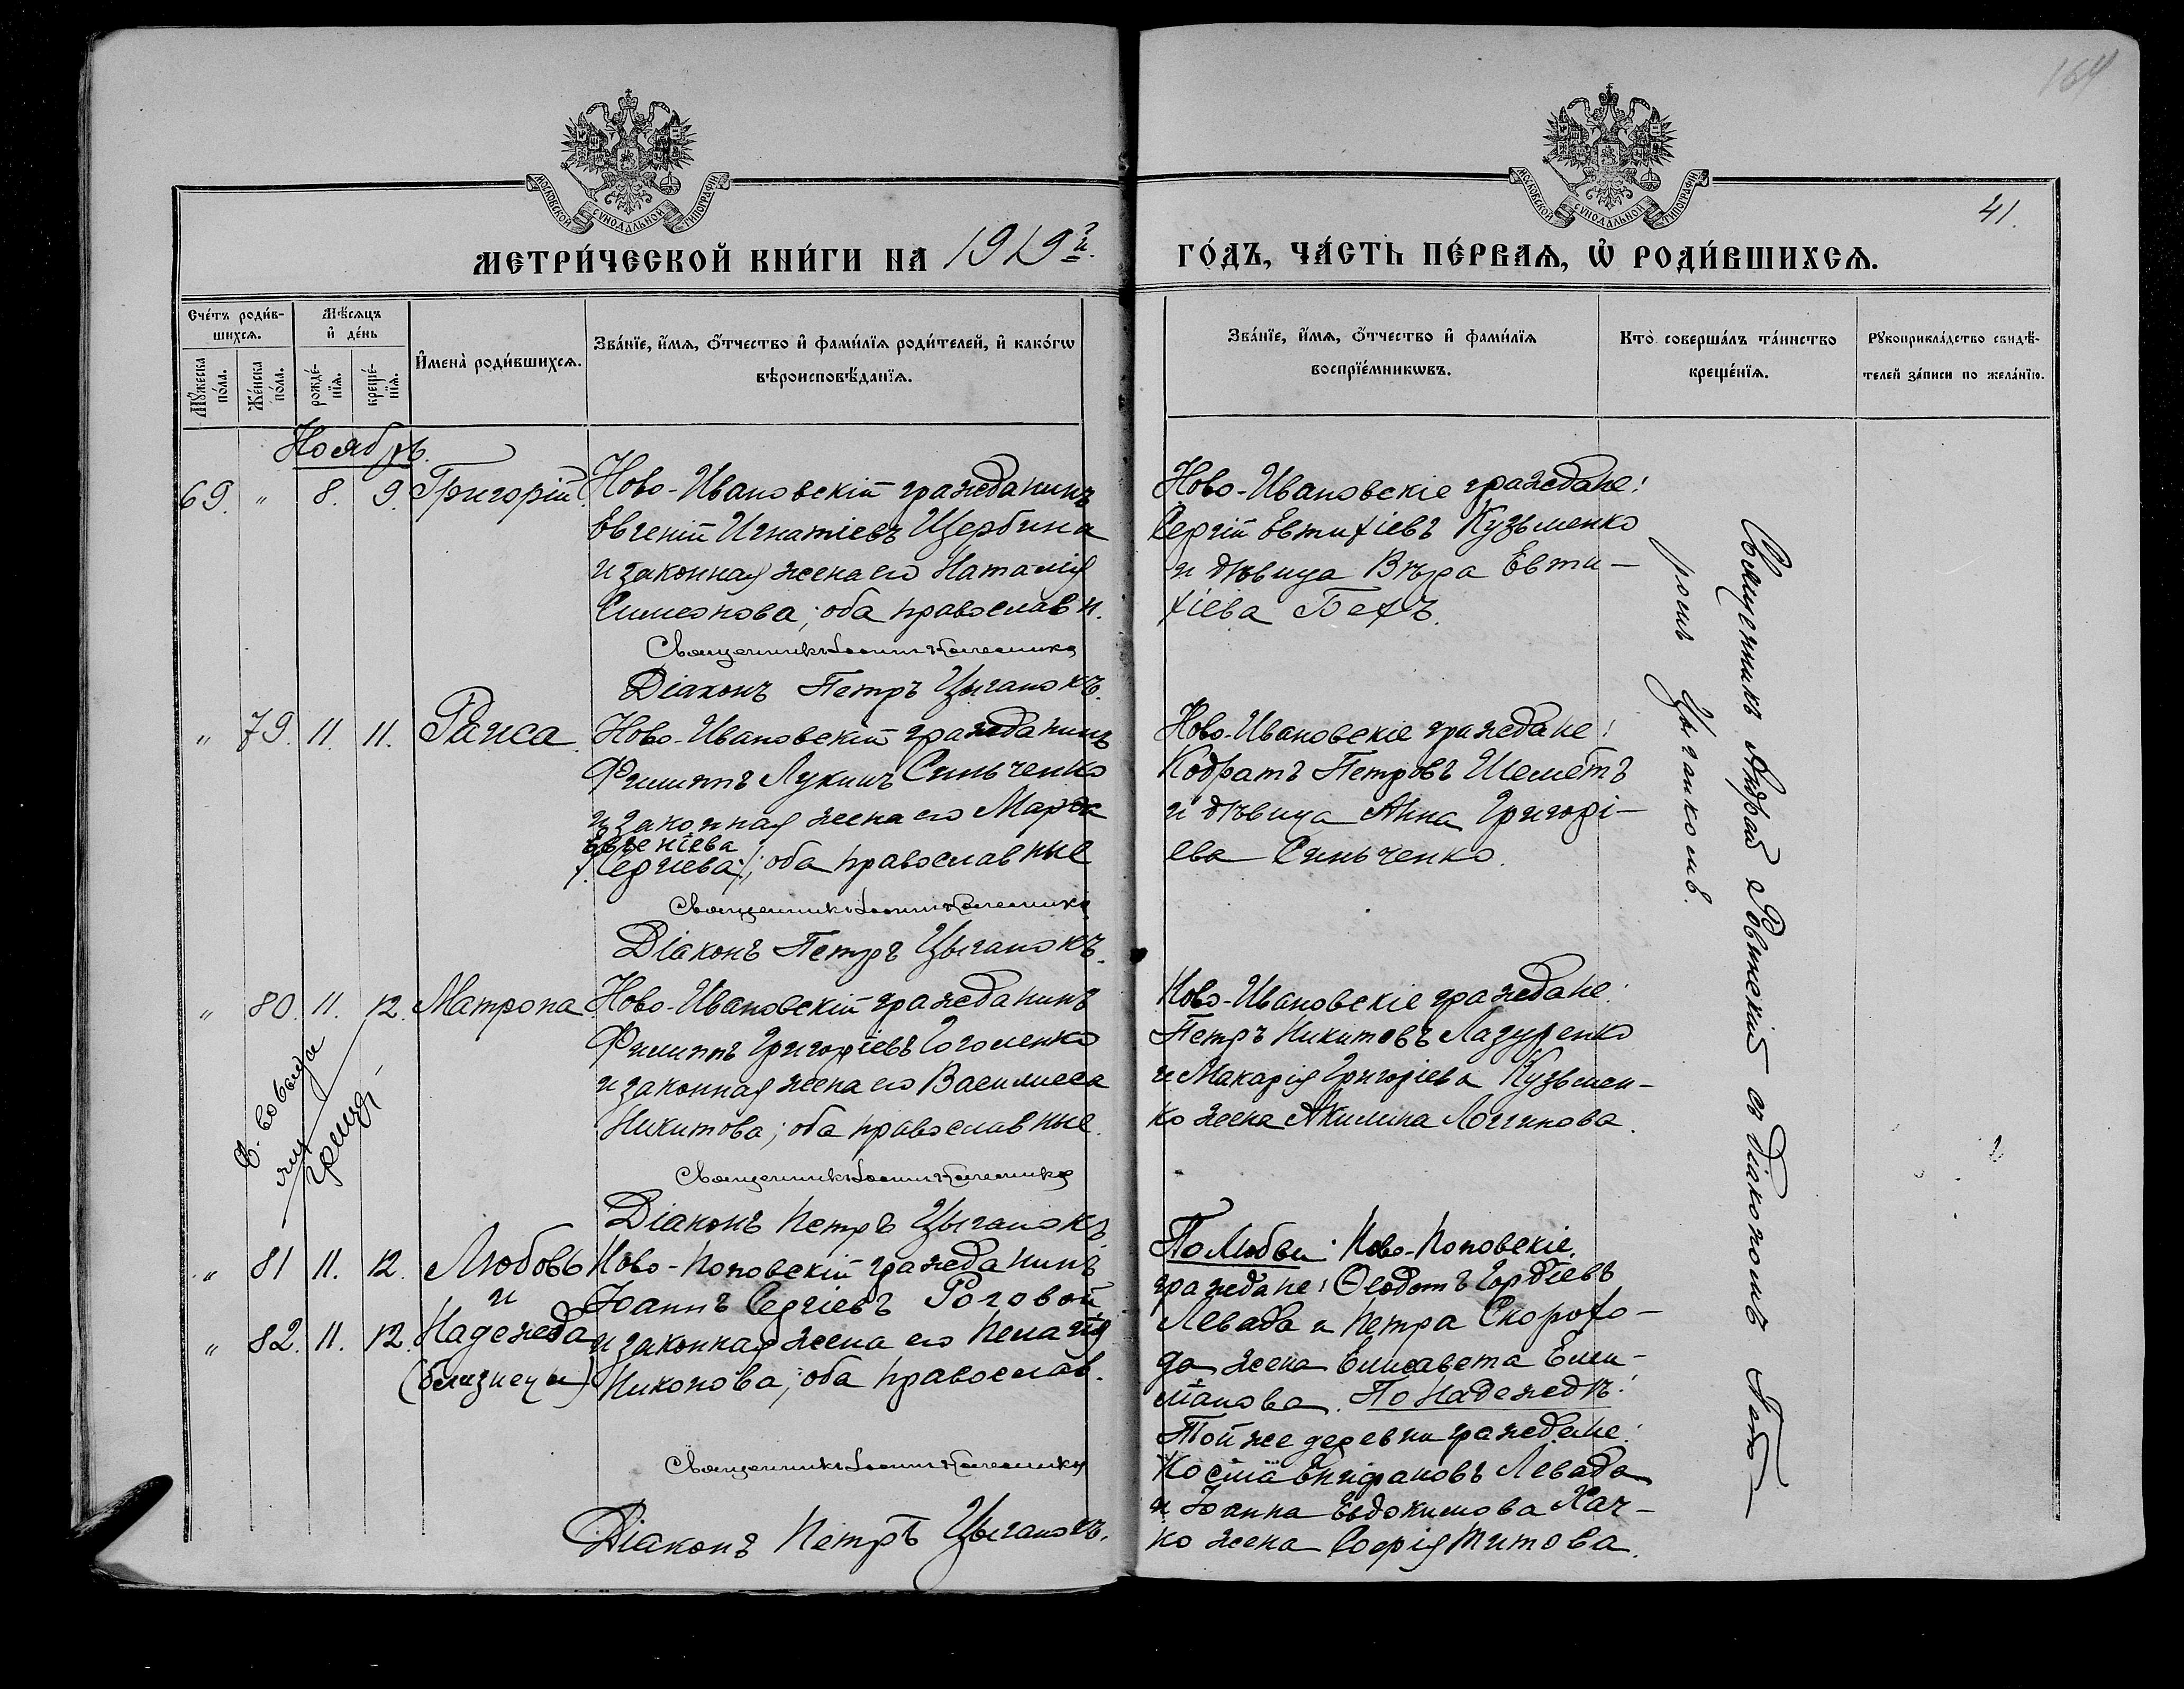 164
41.
МОСКОВСКОЙ СѴНОДАЛЬНОЙ ТИПОГРАФІИ
МОСКОВСКОЙ СѴНОДАЛЬНОЙ ТИПОГРАФІИ
МЕТРИ́ЧЕСКОЙ КНИ́ГИ НА 1919й.
ГО́ДЪ, ЧА́СТЬ ПЕ́РВАѦ, Ѡ҆ РОДИ́ВШИХСѦ.
Сче́тъ роди́в-
шихсѧ.
Мꙋ́жеска по́ла.
Же́нска по́ла.
Мѣ́сѧцъ
и҆ де́нь
рожде́-
нїѧ.
креще́-
нїѧ.
И҆мена̀ роди́вшихсѧ.
Зва́нїе, и҆́мѧ, ѻ҆́тчество и҆ фами́лїѧ роди́телей, и҆ како́гѡ
вѣроисповѣ́данїѧ.
Зва́нїе, и҆́мѧ, ѻ҆́тчество и҆ фами́лїѧ
воспрїе́мникѡвъ.
Кто̀ соверша́лъ та́инство
креще́нїѧ.
Рꙋкоприкла́дство свидѣ́-
телей за́писи по жела́нїю.
Ноябрь.
69. " 8. 9. Григорій.
Ново-Ивановскій гражданинъ
Евгеній Игнатіевъ Щербина
и законная жена его Наталія
Симеонова; оба православн.
Священникъ Іоаннъ
Діаконъ Петръ Цыганокъ.
Ново-Ивановскіе граждане:
Сергій Евтихіевъ Кузьменко
и дѣвица Вѣра Евти-
хіева Бехъ.
" 79. 11. 11. Раиса.
Ново-Ивановскій гражданинъ
Филиппъ Лукинъ Синьченко
и законная жена его Марѳа
Евгеніева
/.Сергіева/.; оба православные
Священникъ Іоаннъ
Діаконъ Петръ Цыганокъ.
Ново-Ивановскіе граждане:
Кодратъ Петровъ Шеметъ
и дѣвица Анна Григорі-
ева Синьченко.
" 80. 11. 12. Матрона
Ново-Ивановскій гражданинъ
Филиппъ Григоріевъ Гоголенко
и законная жена его Василиса
Никитова; оба православные.
Священникъ Іоаннъ
Діаконъ Петръ Цыганокъ
Ново-Ивановскіе граждане:
Петръ Никитовъ Лазуренко
и Макарія Григоріева Кузьмен-
ко жена Акилина Логгинова.
" 81 11. 12. Любовь
и
" 82. 11. 12. Надежда
(близнецы)
Ново-Поповскій гражданинъ
Іоаннъ Сергіевъ Роговой
и законная жена его Пелагія
Никонова; оба православ.
Священникъ Іоаннъ
Діаконъ Петръ Цыганокъ.
По Любви: Ново-Поповскіе
граждане: Ѳеодотъ Гордіевъ
Левада и Петра Скорохо-
да жена Елисавета Еми-
ліанова. По Надеждѣ:
Той же деревни граждане:
Косма Епифановъ Левада
и Іоанна Евдокимова Хач-
ко жена Софія Титова.
Священникъ Андрей Ровинскій съ Діакономъ Пет-
ромъ Цыганкомъ.